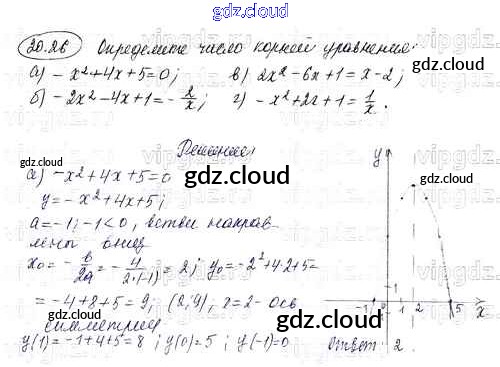 gdz.cloud
20.26 Определите число корней уравнения:
а) -x²+4x+5=0; в) 2x²-6x+1=x-2;
б) -2x²-4x+1=-2/x; г) -x²+2x+1=1/x.
gdz.cloud
Решение
gdz.cloud
а) -x²+4x+5=0
y=-x²+4x+5;
a=-1; -1<0, ветви направ-
лены вниз
x₀=-b/2a=-4/2·(-1)=2; y₀=-2²+4·2+5=
=-4+8+5=9; (2;9); x=2- ось
симметрии
y(1)=-1+4+5=8; y(0)=5; y(-1)=0
y
1
-1 0 1 2 5 x
Ответ: 2.
gdz.cloud
gdz.cloud
gdz.cloud
gdz.cloud
gdz.cloud